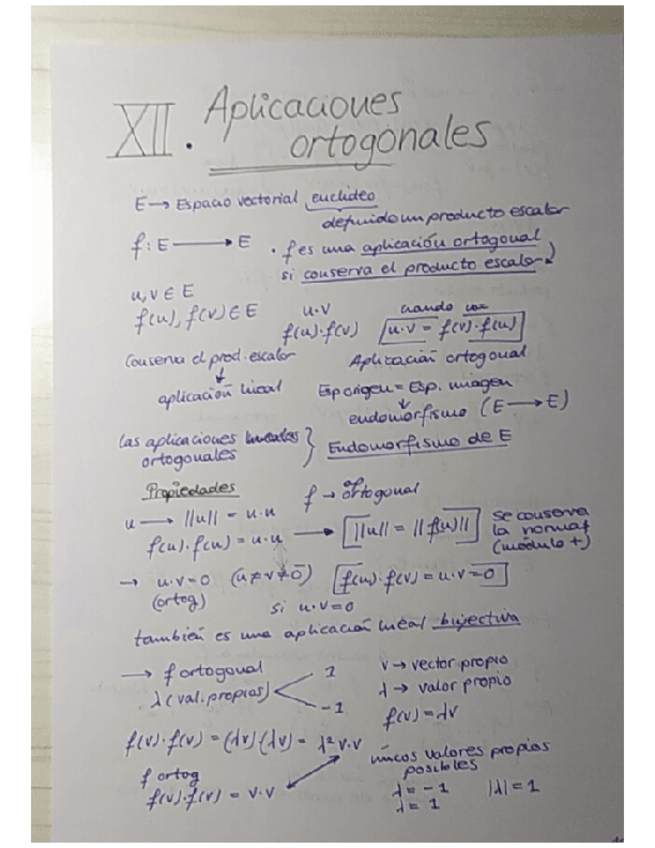 XII. Aplicaciones
ortogonales
E → Espacio vectorial euclídeo
definido un producto escalar
f: E → E · f es una aplicación ortogonal
si conserva el producto escalar
u, v ∈ E
f(u), f(v) ∈ E
u·v
f(u)·f(v)
cuando
u·v = f(v)·f(u)
Conserva el prod. escalar
↓
aplicación lineal
Aplicación ortogonal
Esp origen = Esp. imagen
↓
endomorfismo (E → E)
Las aplicaciones
ortogonales } Endomorfismo de E
Propiedades
f → ortogonal
u → ||u|| = u·u
f(u)·f(u) = u·u → ||u|| = ||f(u)||
se conserva
la norma
(módulo +)
→ u·v=0 (u≠v≠0) f(u)·f(v) = u·v=0
(ortog)
si u·v=0
también es una aplicación lineal bijectiva
→ f ortogonal
λ (val. propios) < 1
-1
v → vector propio
λ → valor propio
f(v) = λv
f(v)·f(v) = (λv)(λv) = λ² v·v
f ortog
f(v)·f(v) = v·v
únicos valores propios
posibles
λ = -1
λ = 1
|λ| = 1